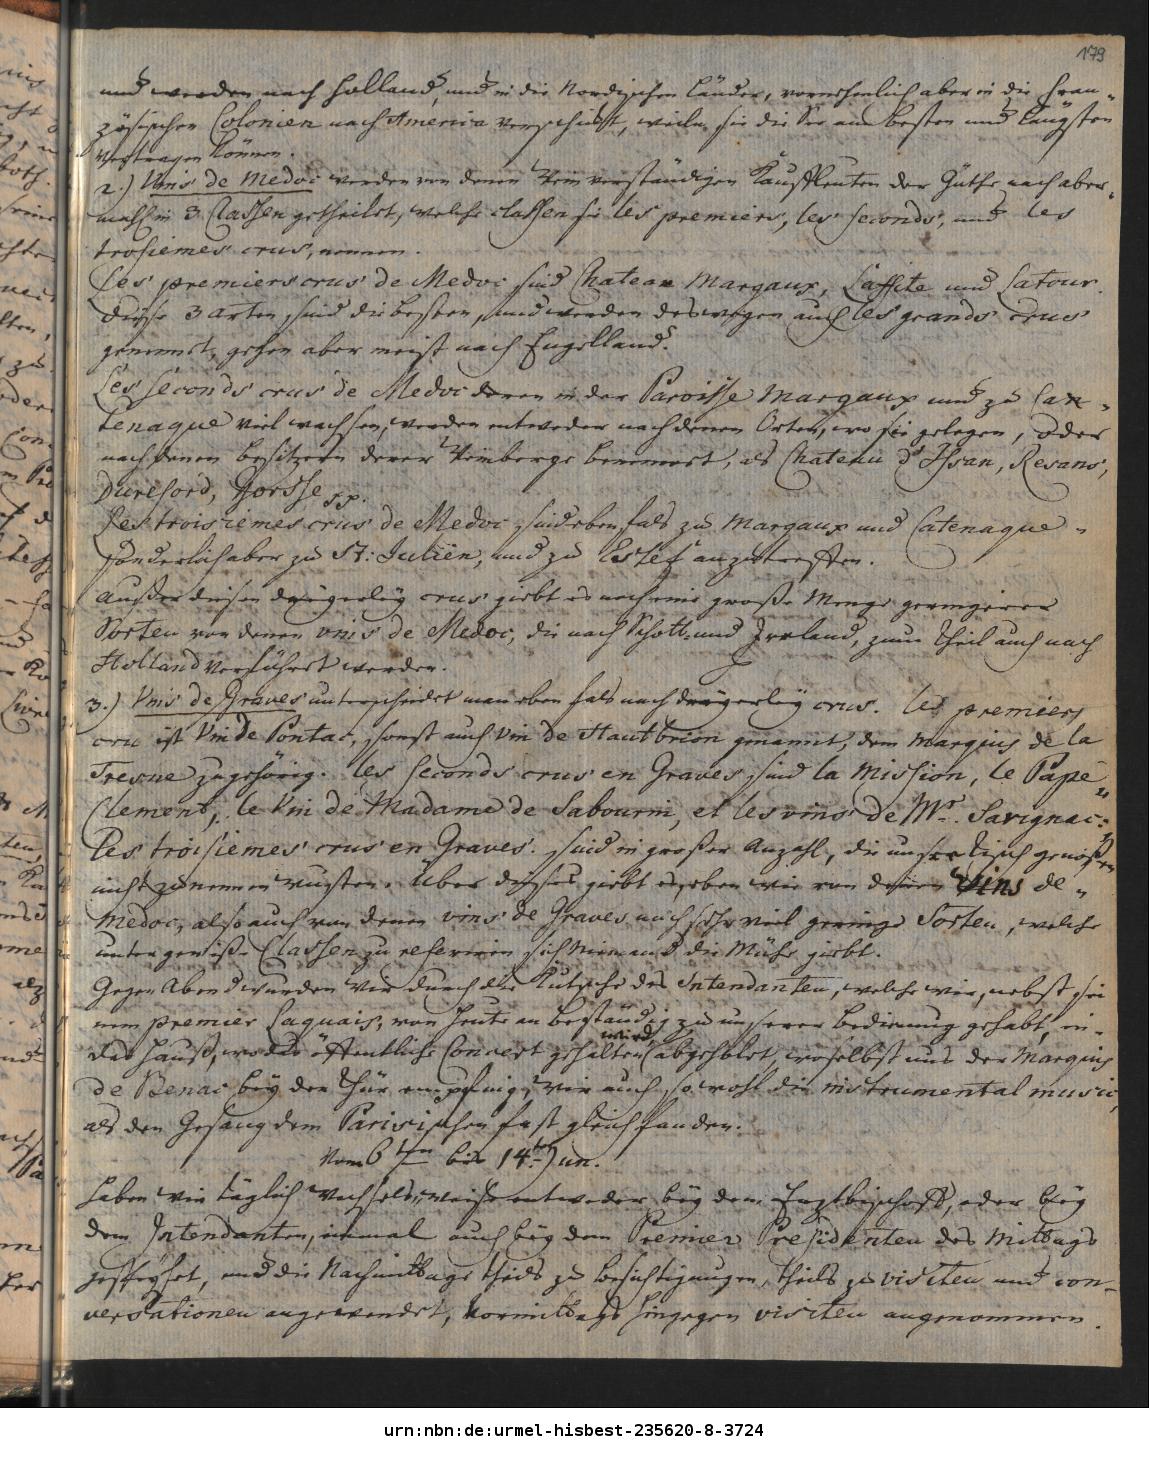 179
und werden nach Holland, und in die Nordischen Länder, vornehmlich aber in die Fran-
zösischen Colonien nach America verschickt, weiln sie die See am besten und längsten
vertragen können.
2.) Vins de Medoc werden von denen Weinverständigen Kauffleuten der Güthe nach aber-
mahl in 3 Classen getheilet, welche classen sie les premiers, les seconds, und les
troisiemes crus, nennen.
Les premiers crus de Medoc sind Chateau Margaux, Laffite und Latour.
diese 3 arten, sind die besten, und werden deswegen auch les grands crus
genennet, gehen aber meist nach Engelland.
Les seconds crus de Medoc deren in der Paroisse Margaux und zu Can-
tenaque viel wachsen, werden entweder nach denen Orten, wo sie gelegen, oder
nach denen besitzern derer Weinberge benennet, als Chateau d'Issan, Resans,
Dureford, Gorsse pp.
Les troisiemes crus de Medoc sind ebenfals zu Margaux und Catenaque
sonderlich aber zu St: Julien, und zu Estef anzutreffen.
Außer diesen dreyerley crus giebt es noch eine große Menge geringerer
Sorten von denen vins de Medoc, die nach Schott- und Irrland, zum Theil auch nach
Holland verführet werden.
3.) Vins de Graves unterscheidet man ebenfals nach dreyerley crus. les premiers
cru ist Vin de Pontac, sonst auch Vin de Hautbrion genannt, dem Marquis de la
Tresne zugehörig. les seconds crus en Graves sind la Mission, le Pape
Clement, le Vin de Madame de Sabourin, et les vins de Mr. Savignac:
Les troisiemes crus en Graves. sind in großer Anzahl, die unsere Tisch genoßen
nicht zu nennen wusten. Über dieses giebt es, eben wie von denen Vins de
Medoc, also auch von denen vins de Graves noch sehr viel geringe Sorten, welche
unter gewiße Classen zu referiren sich niemand die Mühe giebt.
Gegen Abend wurden wir durch die Kutsche des Intendanten, welche wir, nebst sei
nem premier Laquais, von heute an beständig zu unserer bedienung gehabt, in
das Hauß, wo das öffentliche Concert gehalten wird, abgehohlet, woselbst uns der Marquis
de Benac bey der Thür empfing, wir auch sowohl die instrumental music,
als den Gesang dem Parisischen fast gleich fanden.
Vom 6ten bis 14ten Jun.
Haben wir täglich Wechselsweise entweder bey dem Erzbischoff, oder bey
dem Intendanten, einmal auch bey dem Premier Presidenten des Mittags
gespeyset, und die Nachmittage theils zu besichtigungen, theils zu visiten und con-
versationen angewendet, Vormittags hingegen visiten angenommen.
urn:nbn:de:urmel-hisbest-235620-8-3724